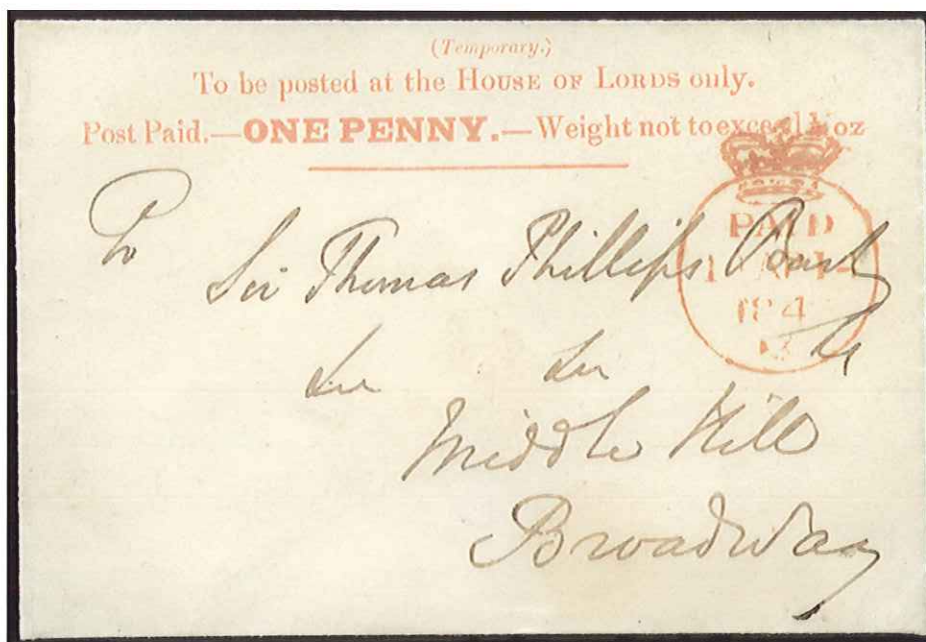 (Temporary.)
To be posted at the HOUSE OF LORDS only.
Post Paid.—ONE PENNY.—Weight not to exceed ½ oz
To
Sir Thomas Phillips Bart
PAID
184
Middle Hill
Broadway